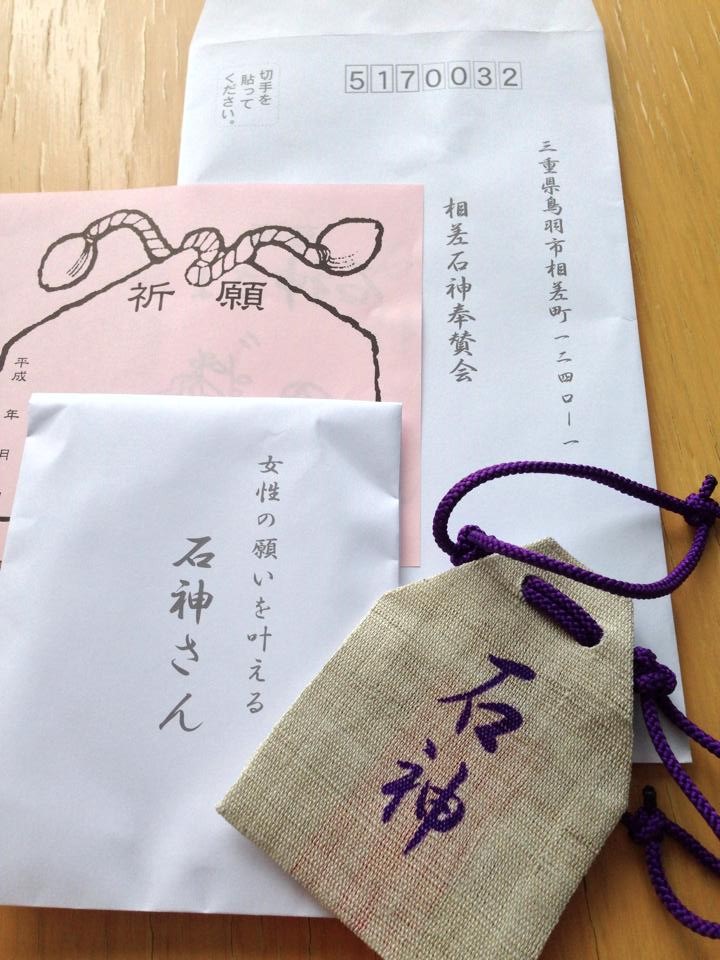 切手を
貼って
ください。
5170032
三重県鳥羽市相差町一二四〇ー一
相差石神奉賛会
祈願
平成
年
月
女性の願いを叶える
石神さん
石神